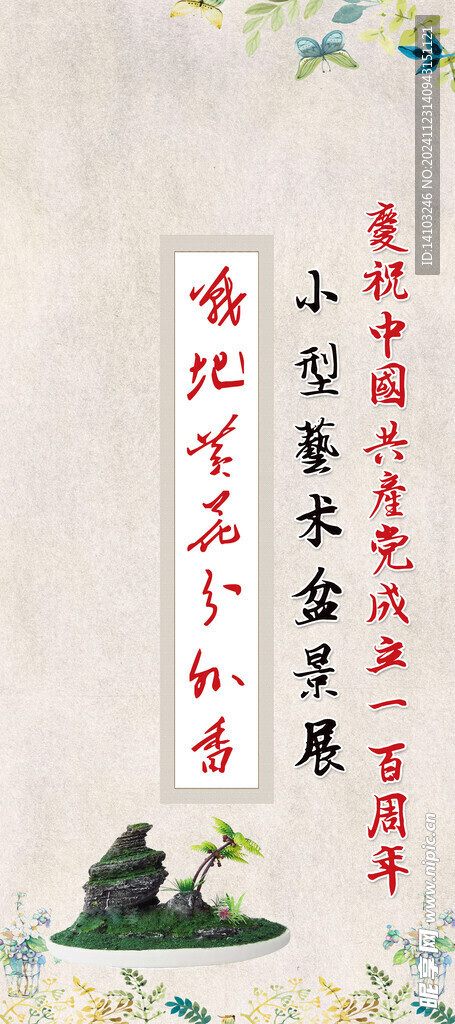 慶祝中國共產党成立一百周年
小型藝术盆景展
战地黄花分外香
ID:14103246 NO:20241123140943152121
昵享网 www.nipic.cn